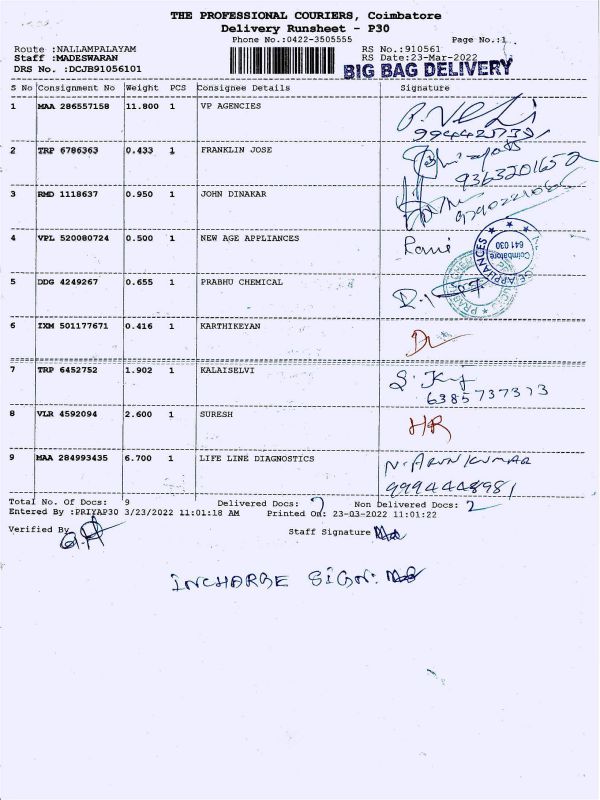 THE PROFESSIONAL COURIERS, Coimbatore
Delivery Runsheet - P30
Phone No.:0422-3505555 Page No.:1
Route :NALLAMPALAYAM RS No.:910561
Staff :MADESWARAN RS Date:23-Mar-2022
DRS No. :DCJB91056101 BIG BAG DELIVERY
S No Consignment No Weight PCS Consignee Details Signature
1 MAA 286557158 11.800 1 VP AGENCIES
2 TRP 6786363 0.433 1 FRANKLIN JOSE
9363201652
3 RMD 1118637 0.950 1 JOHN DINAKAR
4 VPL 520080724 0.500 1 NEW AGE APPLIANCES Rani
Coimbatore
641 030
5 DDG 4249267 0.655 1 PRABHU CHEMICAL
6 IXM 501177671 0.416 1 KARTHIKEYAN
7 TRP 6452752 1.902 1 KALAISELVI
6385737373
8 VLR 4592094 2.600 1 SURESH HR
9 MAA 284993435 6.700 1 LIFE LINE DIAGNOSTICS N. ARUNKUMAR
9994448981
Total No. Of Docs: 9 Delivered Docs: 7 Non Delivered Docs: 2
Entered By :PRIYAP30 3/23/2022 11:01:18 AM Printed On: 23-03-2022 11:01:22
Verified By Staff Signature
INCHARGE SIGN: